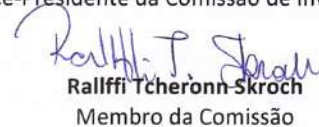 ce-Presidente da Comissão de Inv
Rallffi T. Skroch
Rallffi Tcheronn Skroch
Membro da Comissão